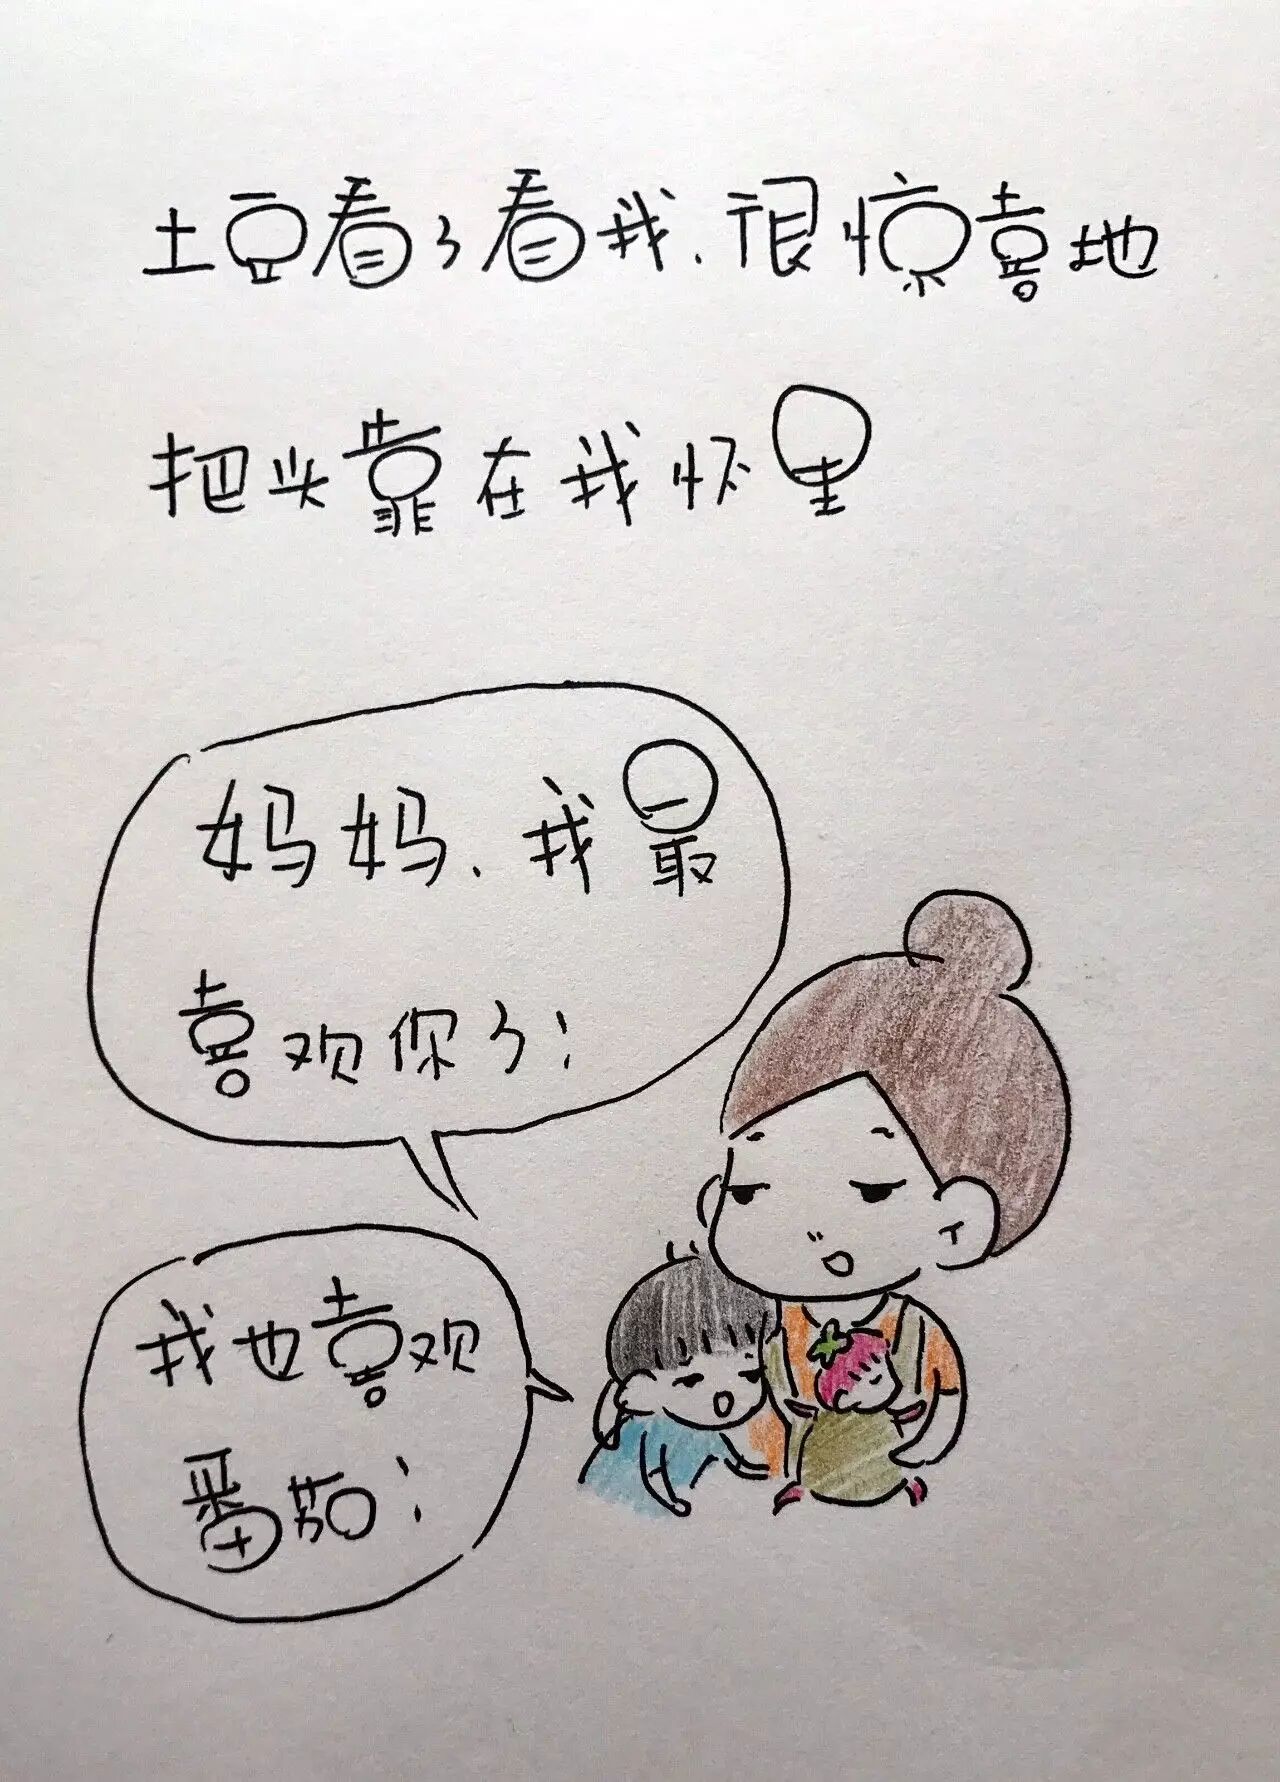 土豆看了看我,很惊喜地
把头靠在我怀里
妈妈,我最
喜欢你了!
我也喜欢
番茄!